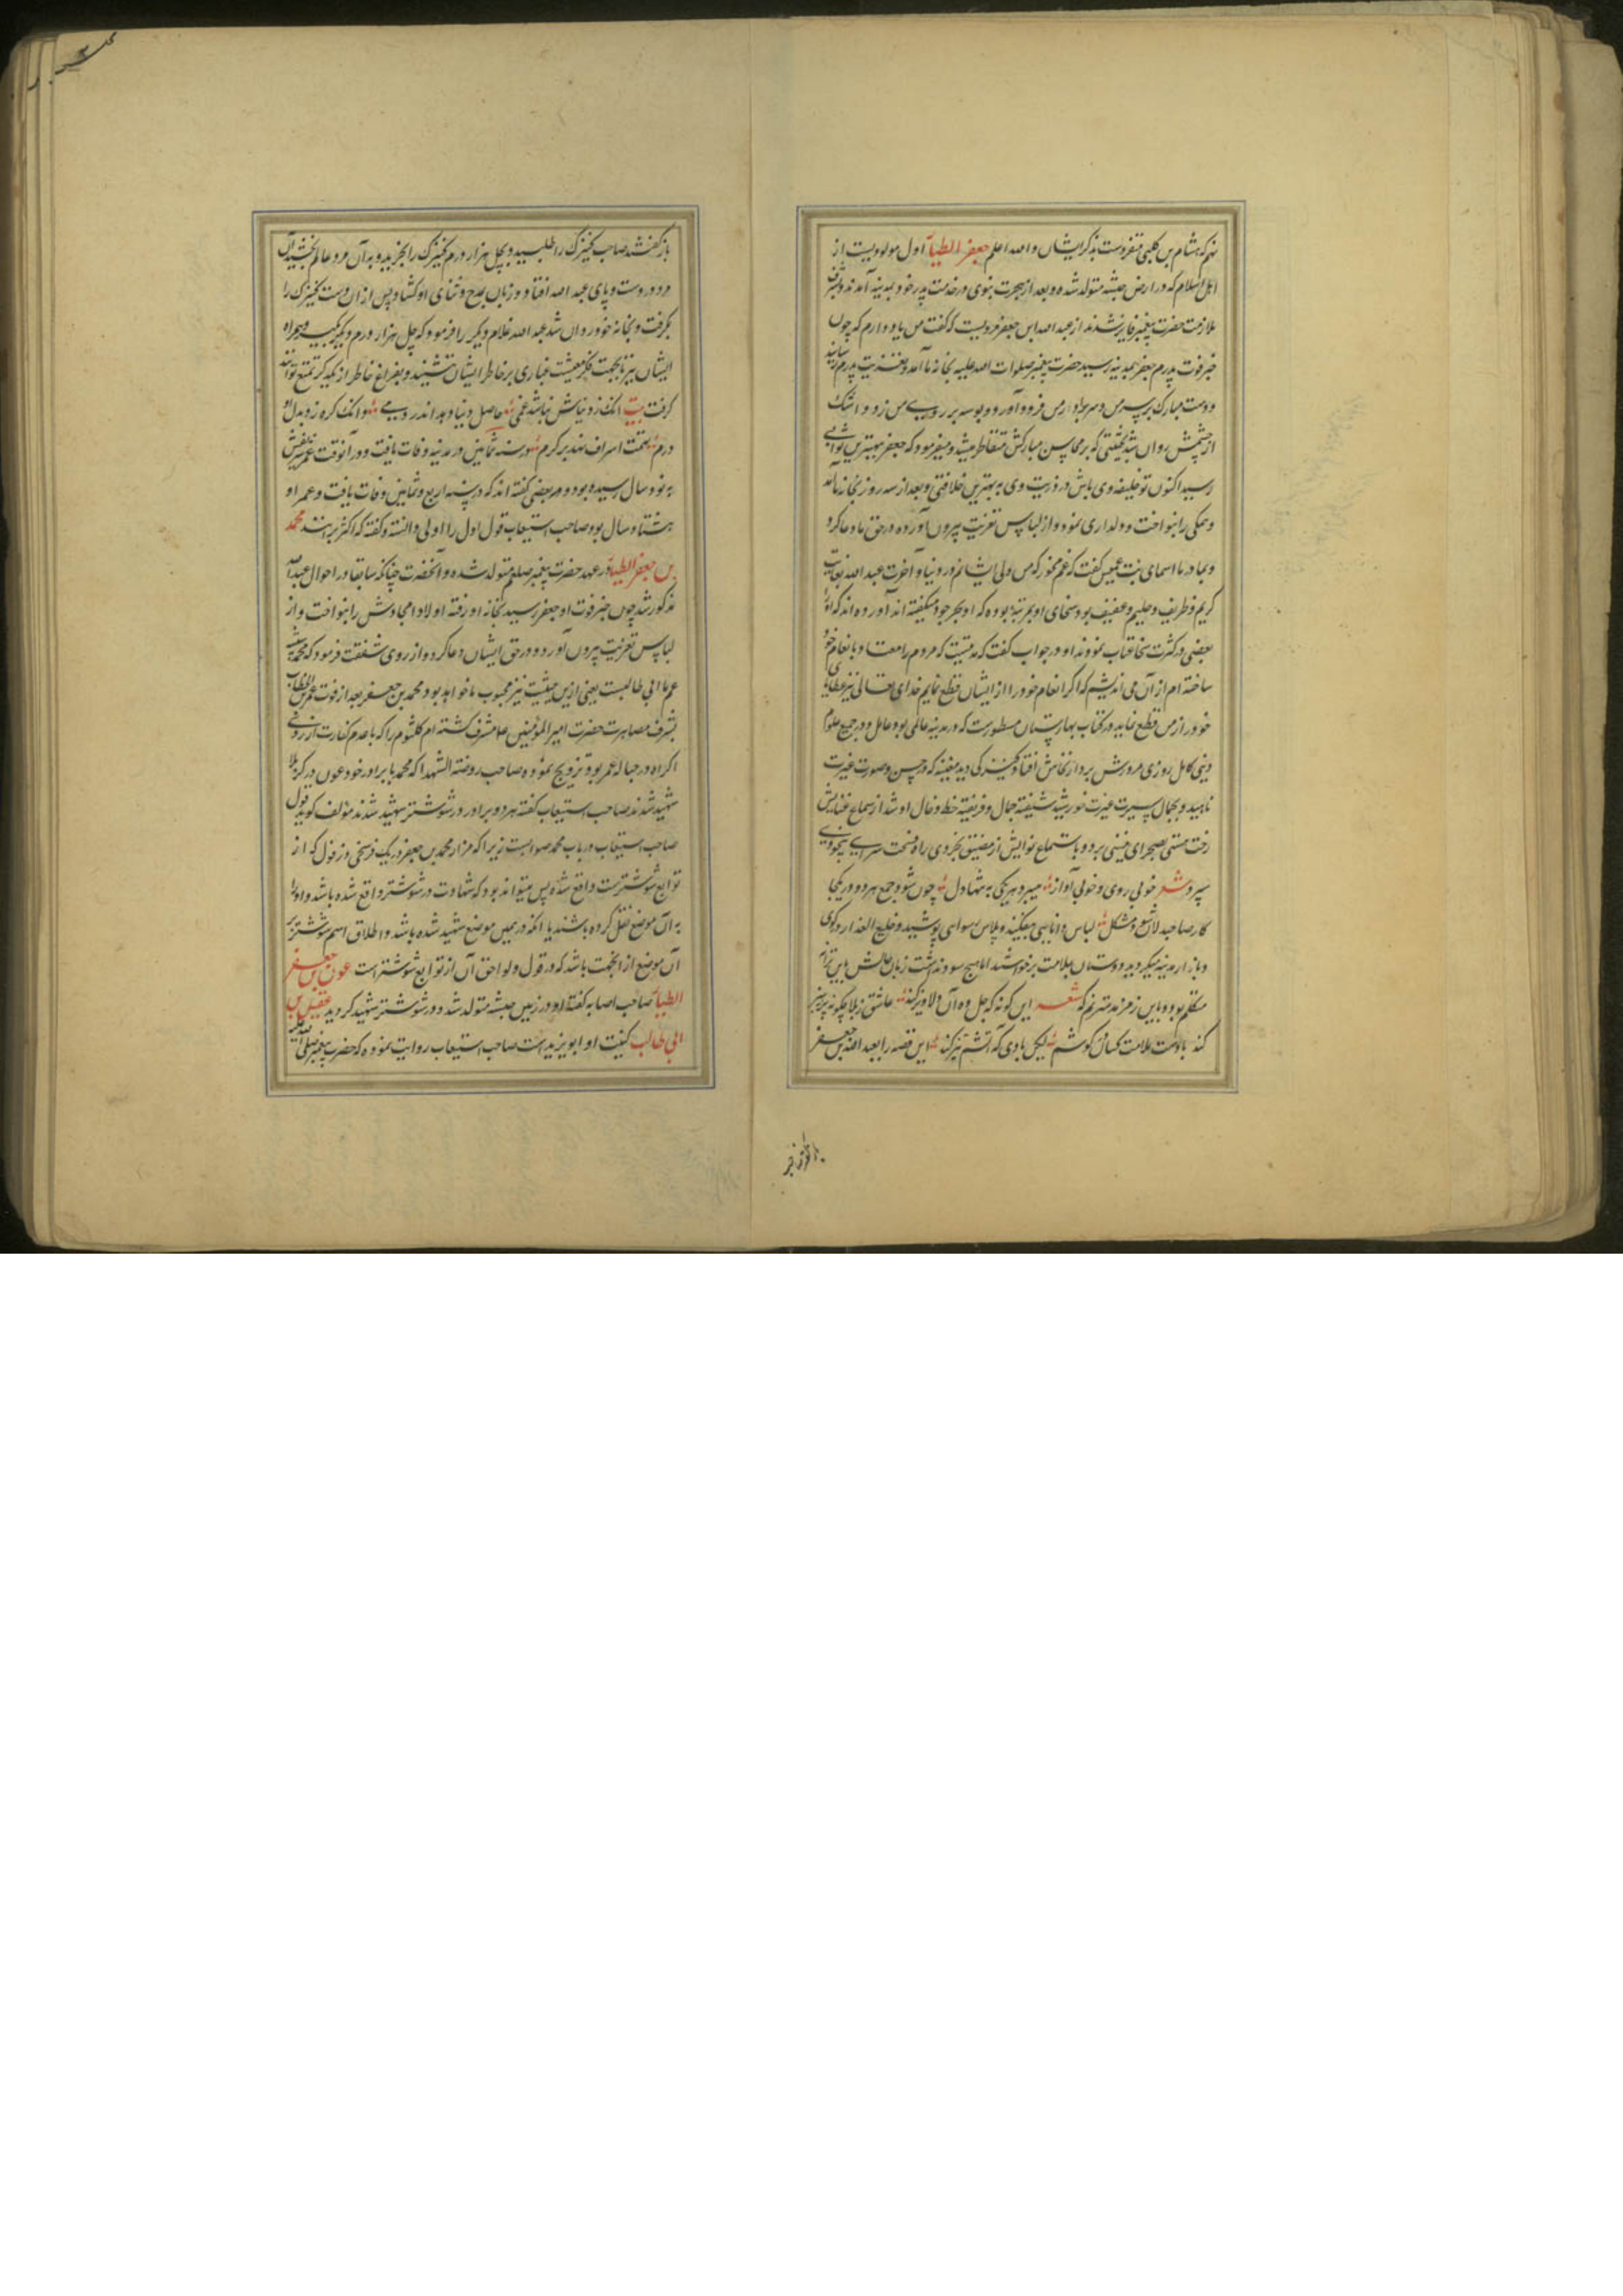 نهم که هشام بن کلبی متفردست بذکر ایشان والله اعلم جعفر الطیار اول مولودیست از
اهل اسلام که در ارض حبشه متولد شده و بعد از هجرت نبوی در خدمت پدر خود بمدینه آمدند و بشرف
ملازمت حضرت پیغمبر فایز شدند از عبد الله ابن جعفر مرویست که گفت من یاد دارم که چون
خبر فوت پدرم جعفر بمدینه رسید حضرت پیغمبر صلوات الله علیه بخانه ما آمد و تعزیت پدرم رسانید
و دست مبارک بر سر من و سر برادر من فرود آورد و بوسه بر روی من زد و اشک
از چشمش روان شد بحیثیتی که بر محاسن مبارکش متقاطر میشد و میفرمود که جعفر ببهترین ثوابی
رسید اکنون تو خلیفه وی باش در ذریت وی به بهترین خلافتی و بعد از سه روز بخانه ما آمد
و همگی را بنواخت و دلداری نمود و از لباس تعزیت بیرون آورده در حق ما دعا کرد
و بمادر ما اسمای بنت عمیس گفت که غم مخور که من ولی ایشانم در دنیا و آخرت عبد الله بغایت
کریم و ظریف و حلیم و عفیف بود سخای او بمرتبه بوده که او را بحر جود میگفته اند آورده اند که او را
بعضی در کثرت سخا عتاب نمودند او در جواب گفت که مدتیست که مردم را معتاد بانعام خود
ساخته ام از آن می اندیشم که اگر انعام خود را از ایشان قطع نمایم خدای تعالی نیز عطایای
خود را از من قطع نماید و در کتاب بهارستان مسطورست که در مدینه عالمی بود عامل و در جمیع علوم
دینی کامل روزی مرورش بر دار نخاس افتاد کنیزکی دید مغنیه که در حسن و صورت غیرت
ناهید و بجمال سیرت حیرت خورشید شیفته جمال و فریفته خط و خال او شد از سماع غنایش
رخت هستی بصحرای نیستی برد و باستماع نوایش از مضیق بخردی راه فسحت سرای بیخودی
سپرد شعر خوبی روی و خوبی آواز میبرد هر یکی به تنها دل چون شود جمع هر دو در یکجا
کار صاحبدلان شود مشکل لباس دانایی بیفکند و پلاس رسوایی پوشید و خلیع العذار در کوی
و بازار مدینه میگردید دوستان بملامت برخواستند اما هیچ سود نداشت زبان حالش باین ترانه
متکلم بود و باین زمزمه مترنم که شعر این گونه که جلوه آن دلاویز کند عاشق ز بلا چگونه پرهیز
کند بادست ملامت کسان در گوشم لیکن بادی که آتشم تیز کند این قصه را بعبد الله بن جعفر
باز گفتند صاحب کنیزک را طلبید و بچهل هزار درم کنیزک را بخرید و به آن مرد عالم بخشید آن
مرد در دست و پای عبد الله افتاد و زبان بمدح و ثنای او گشاد و پس از آن دست کنیزک را
بگرفت و بخانه خود روان شد عبد الله غلام دیگر را فرمود که چهل هزار درم دیگر بگیر و همراه
ایشان ببر تا بجهت فکر معیشت غباری بر خاطر ایشان ننشیند و بفراغ خاطر از یکدیگر تمتع توانند
گرفت بیت
درم تهمت اسراف نهد بر کرم و در سنه ثمانین در مدینه وفات یافت و در آنوقت عمر شریفش
به نود سال رسیده بود و بعضی گفته اند که در سنه اربع و ثمانین وفات یافت و عمر او
هشتاد سال بود و صاحب استیعاب قول اول را اولی دانسته و گفته که اکثر بر اینند محمد
بن جعفر الطیار در عهد حضرت پیغمبر صلعم متولد شده و آنحضرت چنانکه سابقا در احوال عبد الله
مذکور شد چون خبر فوت او جعفر رسید بخانه او رفته اولاد امجادش را بنواخت و از
لباس تعزیت بیرون آورد و در حق ایشان دعا کرد و از روی شفقت فرمود که محمد شبیه
عم ما ابی طالبست یعنی از این حیثیت نیز محبوب ما خواهد بود و محمد بن جعفر بعد از فوت عمر بن الخطاب
بشرف مصاهرت حضرت امیر المؤمنین ع مشرف گشته ام کلثوم را که با عدم کفائت از روی
اکراه در حباله عمر بود تزویج نموده صاحب روضة الشهدا که محمد با برادر خود عون در کربلا
شهید شدند صاحب استیعاب گفته هر دو برادر در شوشتر شهید شدند مؤلف گوید قول
صاحب استیعاب در باب محمد صوابست زیرا که مزار محمد بن جعفر در یک فرسخی دزفول که از
توابع شوشترست واقع شده پس میتواند بود که شهادت در شوشتر واقع شده باشد و او را
به آن موضع نقل کرده باشند یا آنکه در همین موضع شهید شده باشد و اطلاق اسم شوشتر بر
آن موضع از آنجهت باشد که دزفول و لواحق آن از توابع شوشتر است عون بن جعفر
الطیار صاحب اصابه گفته او در زمین حبشه متولد شد و در شوشتر شهید گردید عقیل بن
ابی طالب کنیت او ابو یزید است صاحب استیعاب روایت نموده که حضرت پیغمبر صلی الله علیه